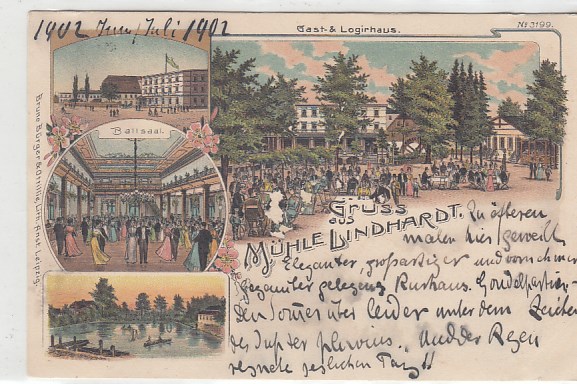 1902 Juni/Juli 1902
Gast- & Logirhaus.
No 3199.
Ballsaal.
Bruno Bürger & Ottillie, Lith. Anst. Leipzig.
Gruss
aus
Mühle Lindhardt.
Zu öfteren
malen hier geweilt
Eleganter, großartiger und vornehmer
eleganter gelegenes Kurhaus. Gondelpartien
Den Sommer über leider unter dem Zeichen
des Jupiter pluvius. Und der Regen
regnete jeglichen Tag!!